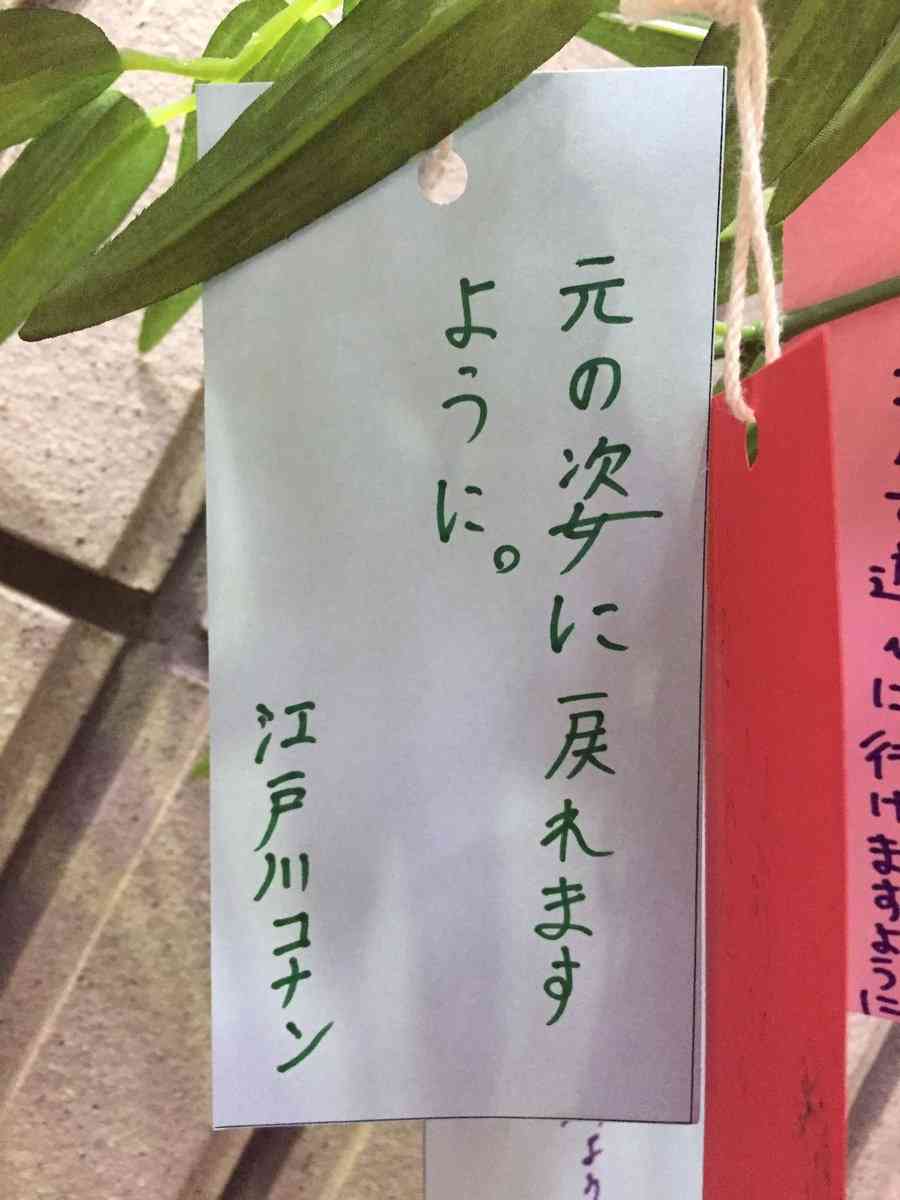 元の姿に戻れます
ように。
江戸川コナン
に行けますように